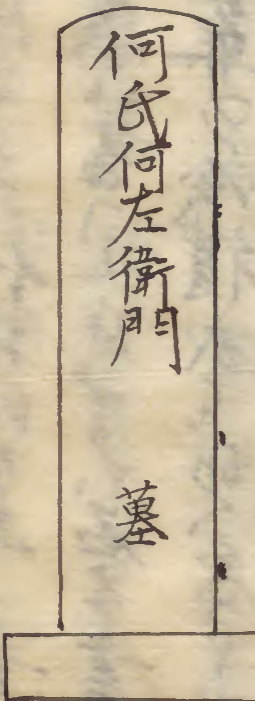 何氏何左衛門
墓